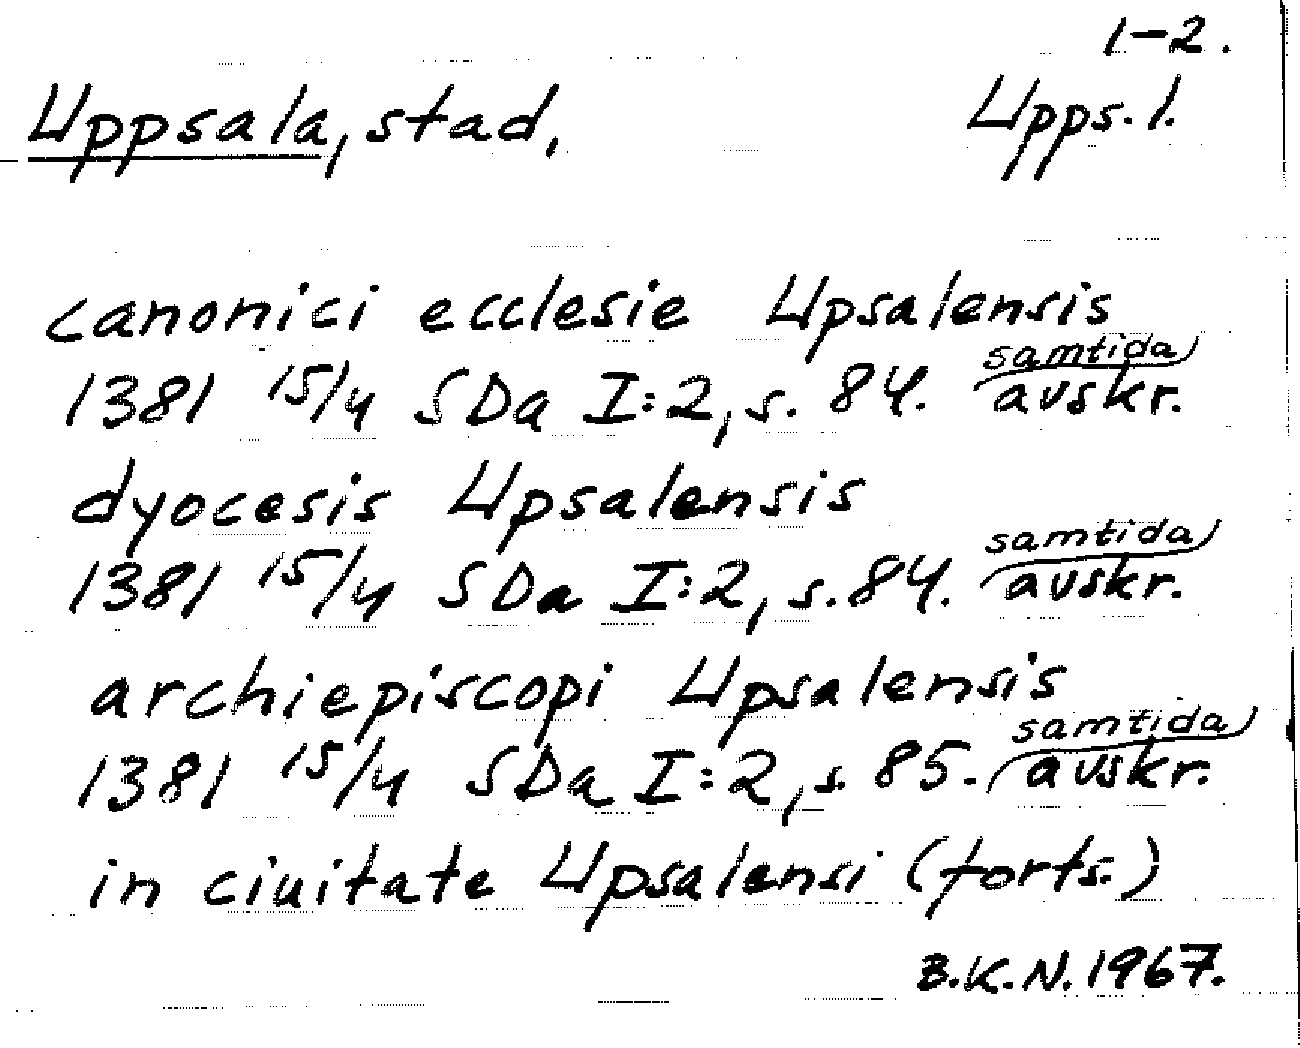 1-2.
Uppsala, stad, Upps. l.
canonici ecclesie Upsalensis
1381 15/4 SDa I:2, s. 84. samtida avskr.
dyocesis Upsalensis
1381 15/4 SDa I:2, s. 84. samtida avskr.
archiepiscopi Upsalensis
1381 15/4 SDa I:2, s. 85. samtida avskr.
in ciuitate Upsalensi (forts.)
B.K.N. 1967.